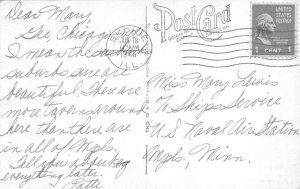 Dear Mary,
See Chicago
I mean the
suburbs sure are
beautiful. There are
more taverns around
here than there are
in all of Mpls.
Tell you about
everything later.
Patte
Post Card
CHICAGO
ILL
UNITED STATES POSTAGE
1 CENT 1
Miss Mary Lewis
℅ Ships Service
U.S. Naval Air Station
Mpls, Minn.